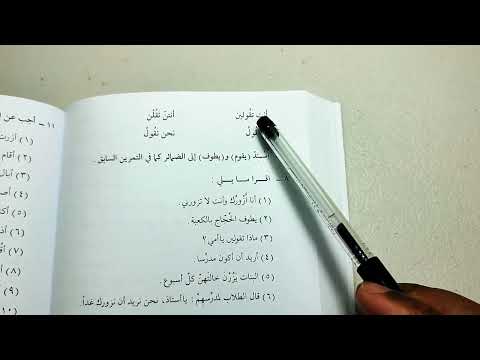 أنتِ تقُولين أنتنّ تَقُلْن
نحن نَقُولُ
أسندْ (يقوم) و(يطوف) إلى الضمائر كما في التمرين السابق .
اقـرأ مـا يـلـي :
(١) أنا أزُورُك وأنت لا تزورني.
(٢) يطوف الحُجّاج بالكعبة
(٣) ماذا تقولين يا أمي ؟
(٤) أريد أن أكون مدرّسا
(٥) البنات يَزُرْنَ خالتَهنّ كلّ أسبوع.
(٦) قال الطلاب لمدرّسهمْ : يا أستاذ، نحن نريد أن نزورك غداً.
١١ – أجب عن
(١) أزرت
(٢) أقام
(٣)
(٤)
(٥)
(٦)
(٧)
(٨)
(٩)
(١٠)